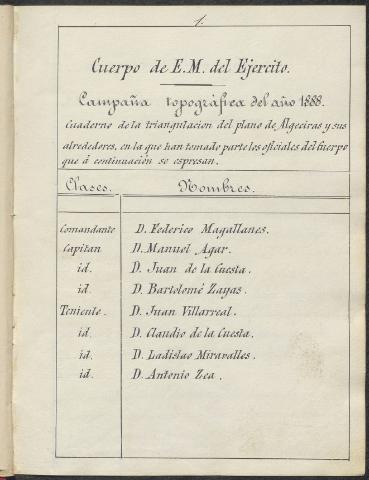 1.
Cuerpo de E.M. del Ejercito.
Campaña topográfica del año 1888.
Cuaderno de la triangulacion del plano de Algeciras y sus
alrededores, en la que han tomado parte los oficiales del Cuerpo
que á continuación se espresan.
Clases. Nombres.
Comandante D. Federico Magallanes.
Capitan D. Manuel Agar.
id. D. Juan de la Cuesta.
id. D. Bartolomé Zayas.
Teniente. D. Juan Villarreal.
id. D. Claudio de la Cuesta.
id. D. Ladislao Miravalles.
id. D. Antonio Zea.